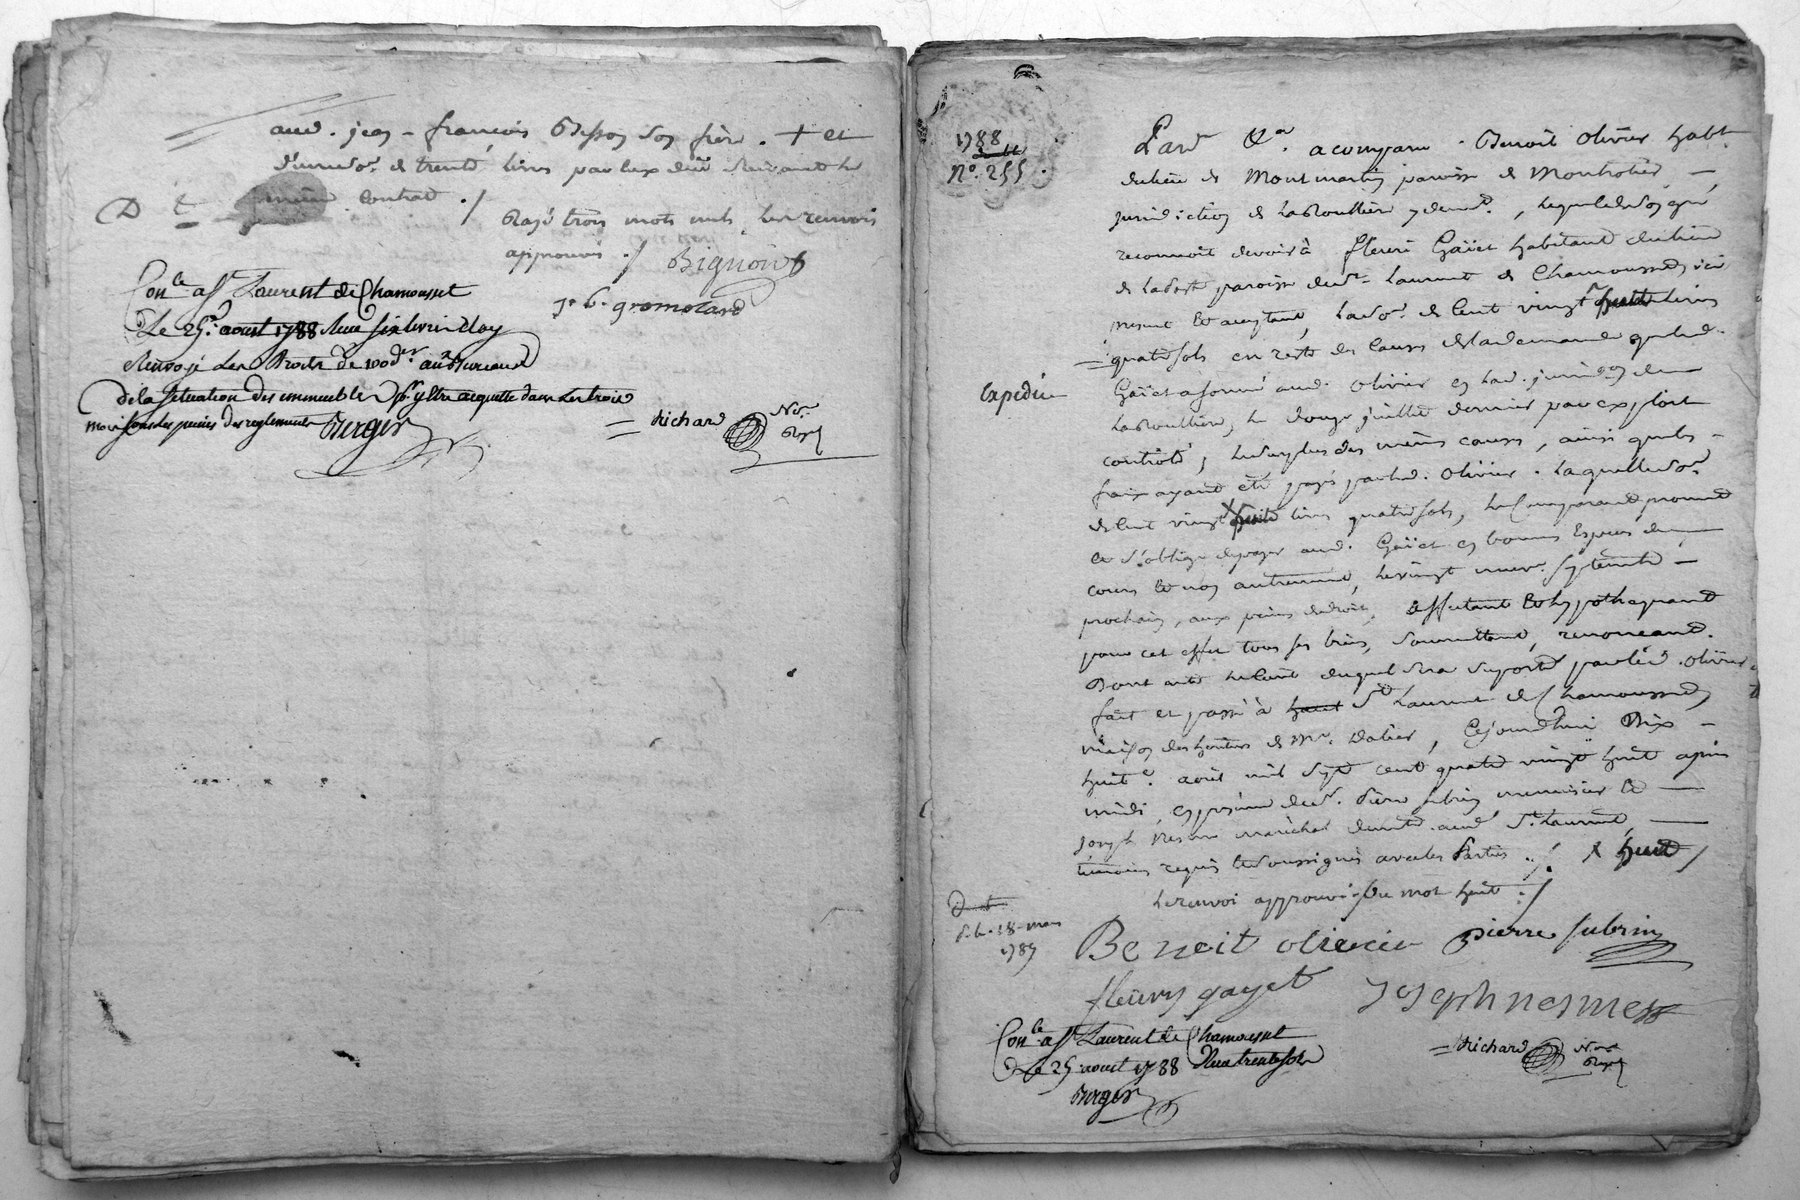 aud. jean - françois Besson son frère. + et
de trente livres par eux suivant le
même contrat ./
Rayé trois mots nuls, les renvois
approuvés ./ Bignon
J. B. gromolard
Con.le a St Laurent de Chamousset
Le 25. aoust 1788
Renvoyé les Droits de 100.de au Bureau
de la situation des immeubles
mois sous les peines des reglements Berger
Richard No.re Royal
1788
N.o 255.
Pard. &a. a comparu Benoit Olivier habt.
du lieu de Montmartin paroisse de Montrotier,
jurisdiction de la Roulliere y demt., lequel de son gré
reconnoit devoir à fleuri Gaïet habitant du lieu
de la paroisse de St. Laurent de Chamousset, ici
present et acceptant, la so.e de cent vingt livres
quatre sols en reste des causes de la demande que led.
Expédié
Gaïet a formé aud. Olivier en lad. juridi.on de
la Roulliere, le douze juillet dernier par exploit
controlé, le surplus des mêmes causes, ainsi que les
frais ayant été payés par led. Olivier. laquelle so.e
de cent vingt X livres quatre sols, le comparant promet
et s'oblige de payer aud. Gaïet en bonnes Especes de
cours et non autrement, le vingt neuf. septembre
prochain, aux peines de droit, affectant et hypothequant
pour cet effet tous ses biens, soumettant, renonceant.
Dont acte le coût duquel sera suporté par led. Olivier
fait et passé à St Laurent de Chamousset,
maison des héritiers de Mr. Dalier, Cejourdhui Dix
huit. août mil sept cent quatre vingt huit après
midi, en présence de sr. Pierre subrin menuisier et
Joseph Nesme maréchal demt. aud. St. Laurent,
temoins requis et soussignés avec les Parties ./. X huit /
le renvoi approuvé du mot huit ./
18 mars
1789
Benoit olivier pierre subrin
fleury gayet Joseph nesme
Con.le a St Laurent de Chamousset
Le 25. aoust 1788 Reçu trente sols
Berger
Richard No.re Royal